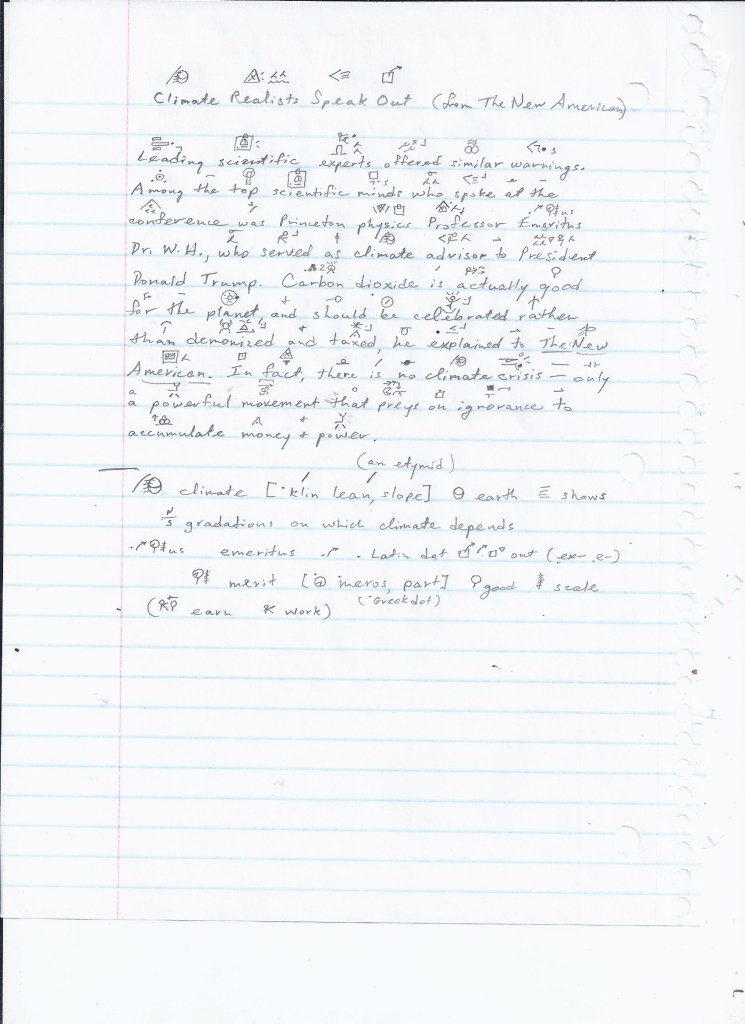 Climate Realists Speak Out (from The New American)
Leading scientific experts offered similar warnings.
Among the top scientific minds who spoke at the
conference was Princeton physics Professor Emeritus
Dr. W.H., who served as climate advisor to President
Donald Trump. Carbon dioxide is actually good
for the planet, and should be celebrated rather
than demonized and taxed, he explained to The New
American. In fact, there is no climate crisis — only
a powerful movement that preys on ignorance to
accumulate money + power.
(an etymid)
climate [klin lean, slope] earth shows
N/S gradations on which climate depends
us emeritus Latin dot out (ex- e-)
merit [meros, part] good scale
(earn work) (Greek dot)